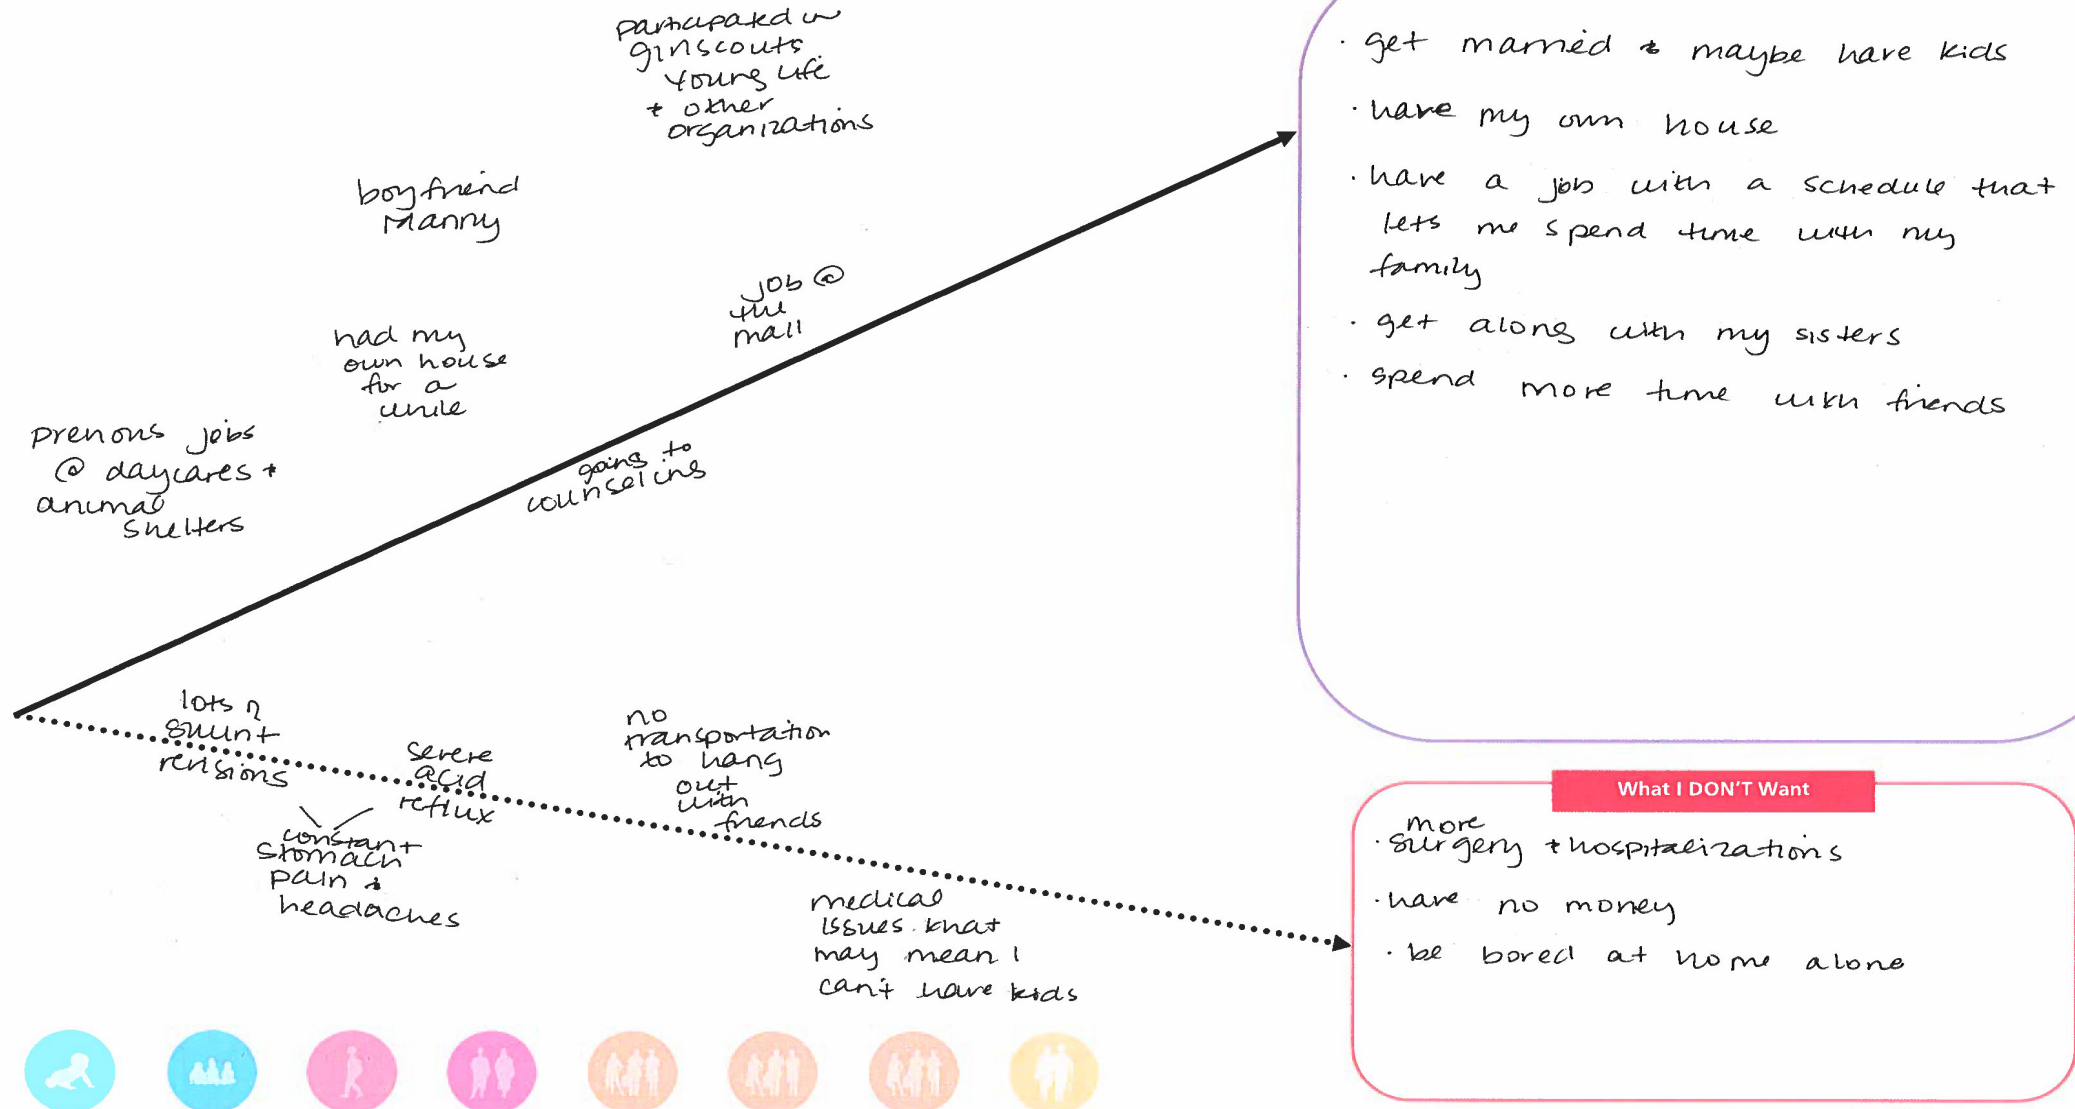 participated in
girlscouts
Young Life
+ other
organizations
boyfriend
Manny
job @
the
mall
had my
own house
for a
while
previous jobs
@ daycares +
animal
shelters
going to
counseling
· get married & maybe have kids
· have my own house
· have a job with a schedule that
lets me spend time with my
family
· get along with my sisters
· spend more time with friends
lots of
shunt
revisions
severe
acid
reflux
constant
stomach
pain &
headaches
no
transportation
to hang
out
with
friends
medical
issues that
may mean I
can't have kids
What I DON'T Want
more
· surgery + hospitalizations
· have no money
· be bored at home alone